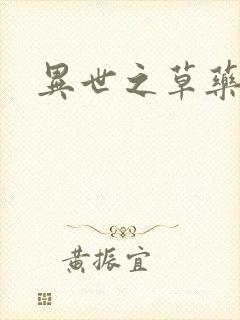 異世之草藥
黃振宜